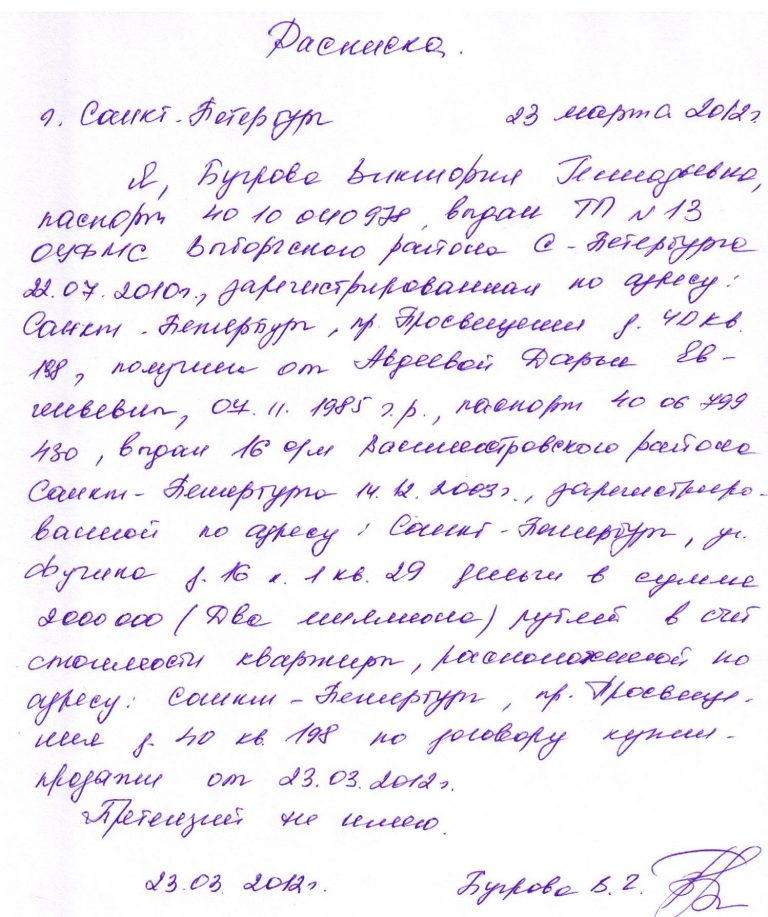 Расписка.
г. Санкт-Петербург 23 марта 2012г.
Я, Бугрова Виктория Геннадьевна,
паспорт 40 10 040978, выдан ТП №13
ОУФМС Выборгского района С-Петербурга
22.07.2010г., зарегистрированная по адресу:
Санкт-Петербург, пр. Просвещения д. 40 кв.
198, получила от Авдеевой Дарьи Ев-
геньевны, 07.11.1985 г.р., паспорт 40 06 799
430, выдан 16 о/м Василеостровского района
Санкт-Петербурга 14.12.2003г., зарегистриро-
ванной по адресу: Санкт-Петербург, ул.
Фучика д. 16 к. 1 кв. 29 деньги в сумме
2000 000 (Два миллиона) рублей в счет
стоимости квартиры, расположенной по
адресу: Санкт-Петербург, пр. Просвеще-
ния д. 40 кв. 198 по договору купли-
продажи от 23.03.2012г.
Претензий не имею.
23.03.2012г. Бугрова В. Г.